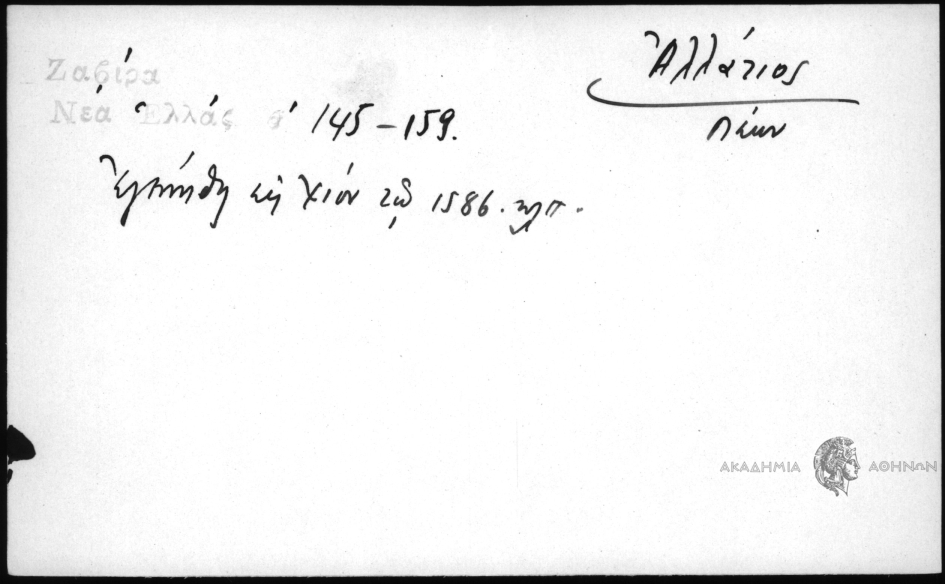 Ζαβίρα
Νέα Ἑλλάς σ' 145-159.
Ἀλλάτιος
Λέων
Ἐγεννήθη εἰς Χίον τῷ 1586. κλπ.
ΑΚΑΔΗΜΙΑ ΑΘΗΝΩΝ